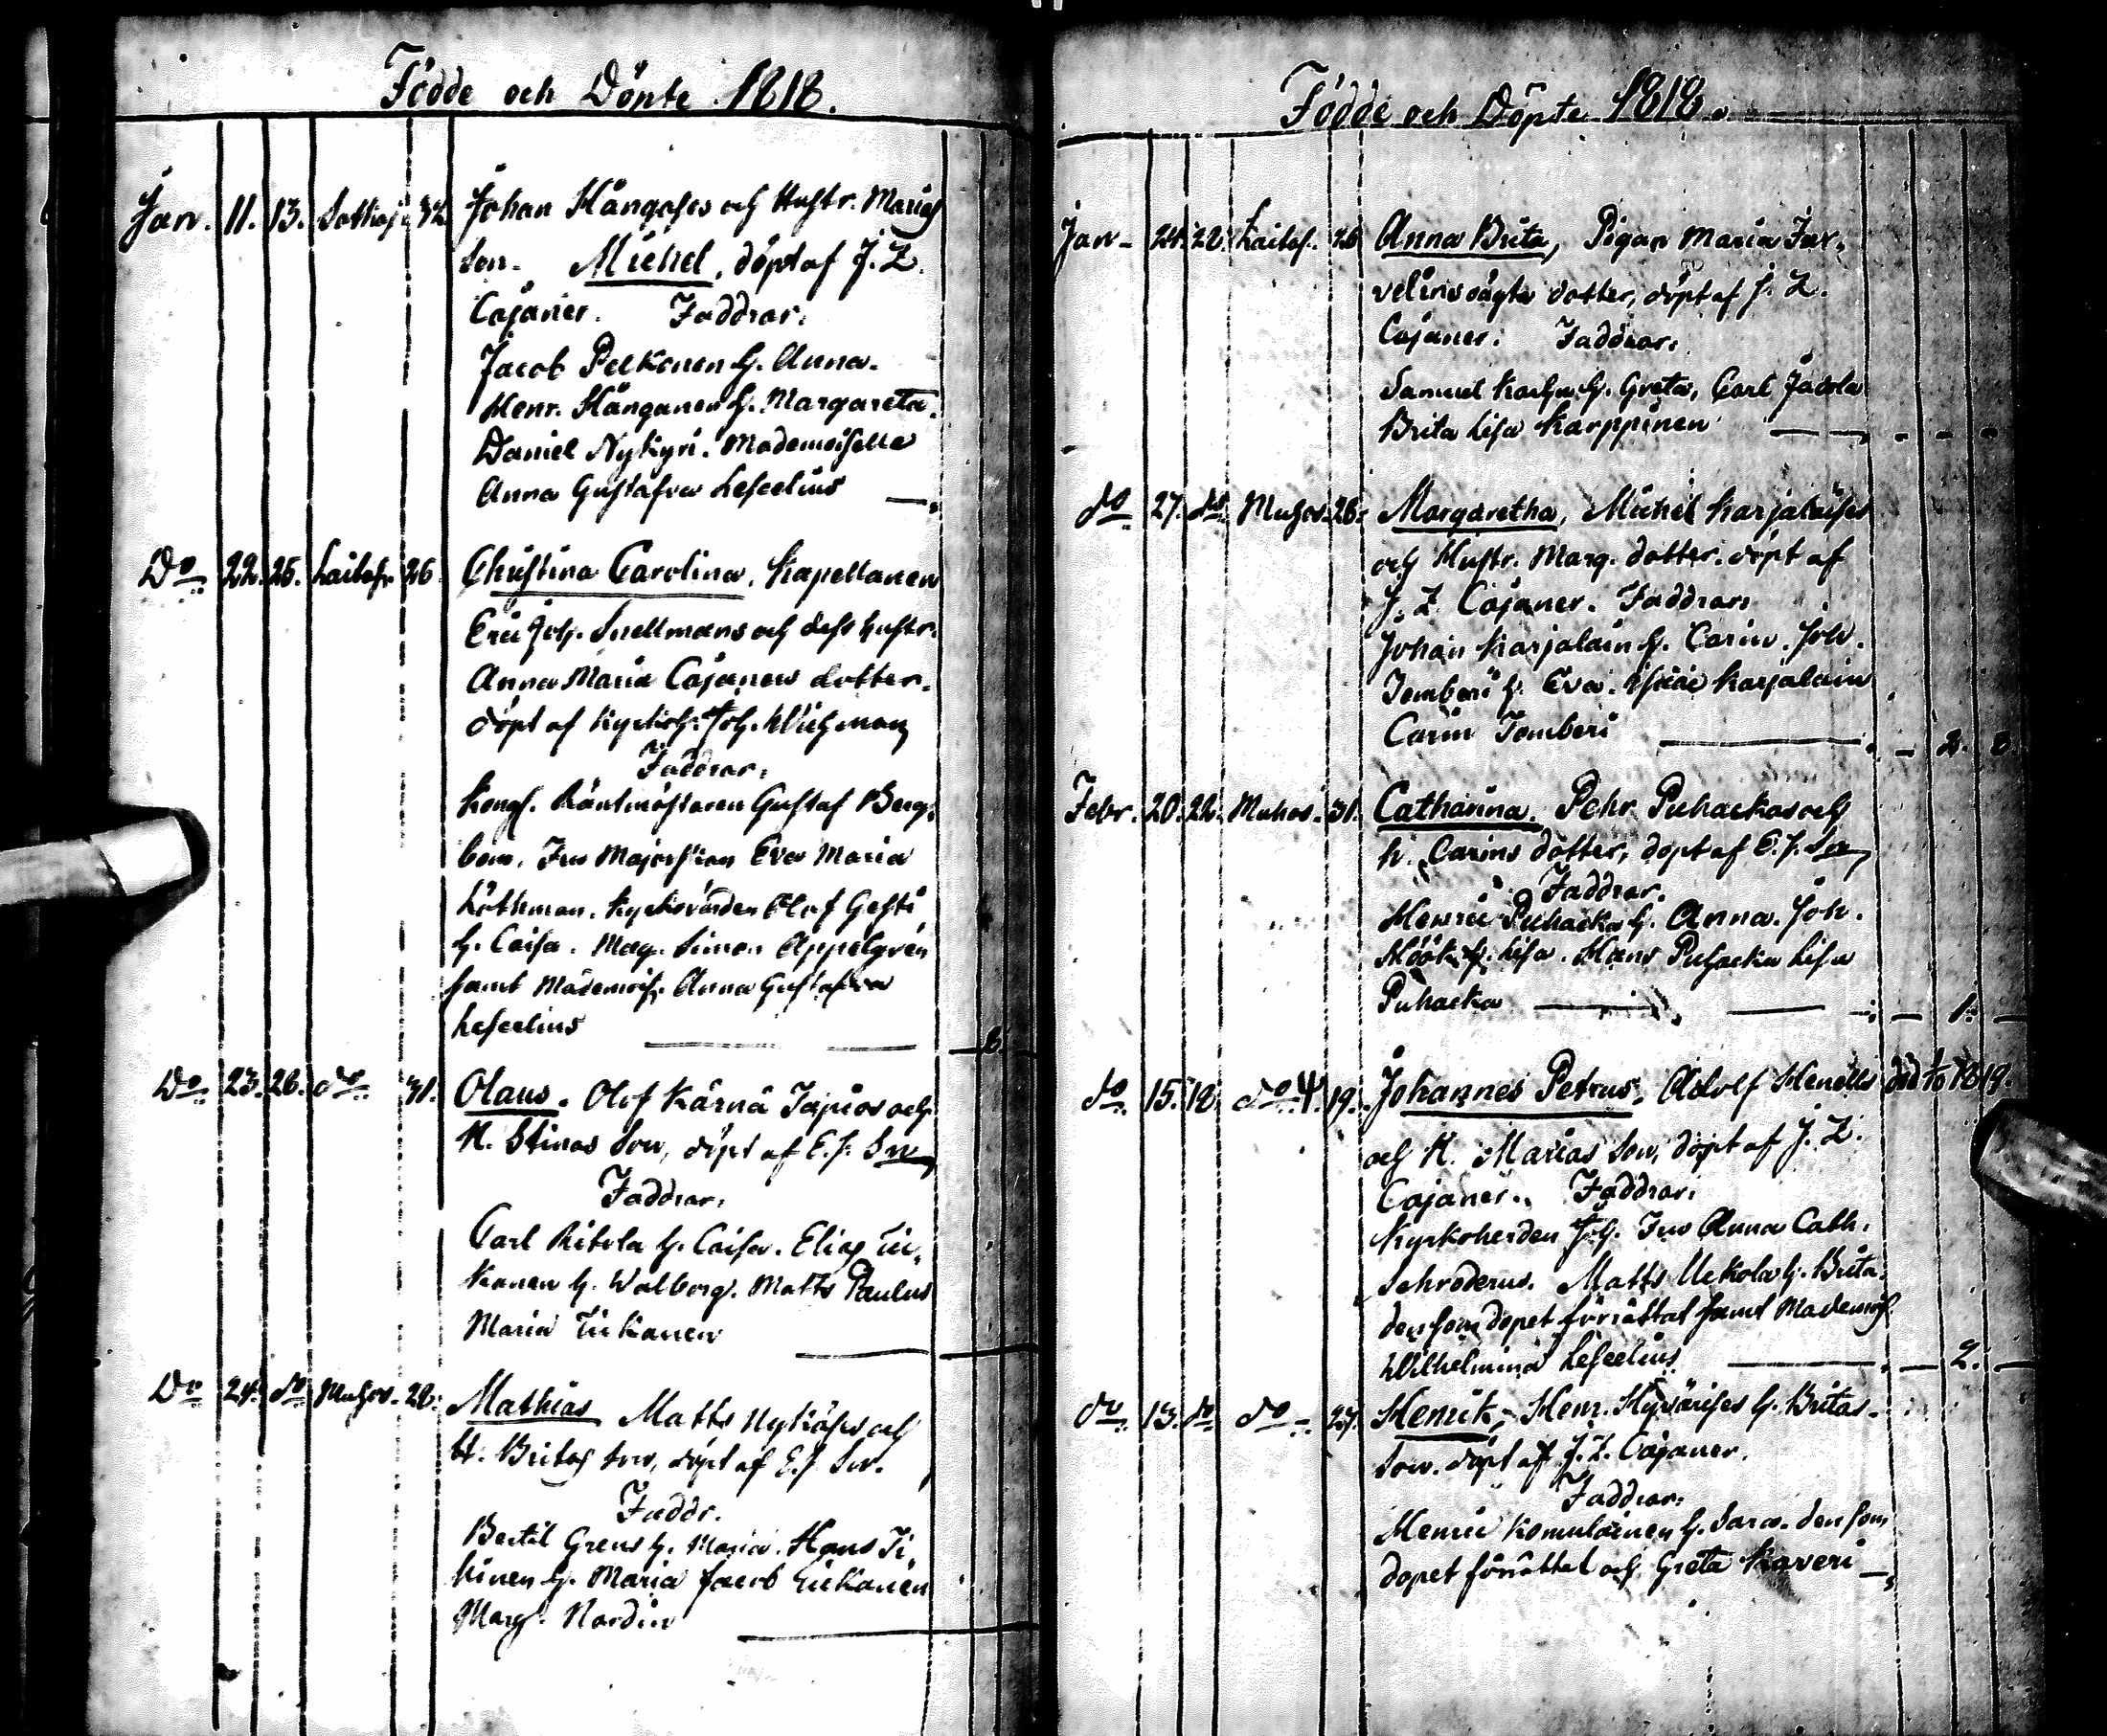 Födde och Döpte 1818.
Jan. 11. 13. 32. Johan Kångases och Hustr. Marias
Son. Michel, döpt af J. Z.
Cajaner. Faddrar:
Jacob Pelkonen h. Anna.
Henr. Kånganen h. Margareta.
Daniel Nykyri. Mademoiselle
Anna Gustafva
Do 22. 25. Laitas. 26 Christina Carolina, Kapellanen
Eric Joh. Snellmans och dess hustr.
Anna Maria Cajaners dotter.
döpt af Kyrkoh. Joh. Wichman
Faddrar:
Kongl. Räntmästaren Gustaf Berg-
bom, Fru Eva Maria
Löthman. Kyrkovärden Olof
h. Caisa. Mag. Simon Appelgrén
samt Mademois. Anna Gustafva
Do 23. 26. do 31. Olaus. Olof Kärnä Tapios och
H. Stinas Son, döpt af E. J. Sn
Faddrar:
Carl Ritola h. Caisa. Elias Tii-
kanen h. Walborg. Matts Paulus
Maria Tiikanen
Do 24. do Muhos. 28. Mathias Matts och
H. Britas Son, döpt af E. J. Sn.
Faddr.
Bertil Grens h. Maria. Hans
h. Maria Jacob Tiikanen
Marg. Nordin
Födde och Döpte 1818.
Jan. 22. Laitas. 26 Anna Brita, Pigan Maria
oägta dotter, döpt af J. Z.
Cajaner. Faddrar:
Samuel h. Greta, Carl
Brita Lisa Karppinen
do 27. do Muhos. 28. Margaretha, Michel Karjalaises
och Hustr. Marg. dotter. döpt af
J. Z. Cajaner. Faddrar:
Johan Karjalain h. Carin. Joh.
Tomberi h. Eva. Karjalain
Carin Tomberi 2.
Febr. 20. 22. Muhos. 31. Catharina. Pehr Puhackas och
h. Carins dotter, döpt af E. J. Sn
Faddrar:
Henric Puhacka h. Anna. Joh.
Höök h. Lisa. Hans Puhacka Lisa
Puhacka 1.
do 15. 18. do 19. Johannes Petrus, Adolf Henells död 1819.
och H. Marias Son, döpt af J. Z.
Cajaner. Faddrar:
Kyrkoherden Joh. Fru Anna Cath.
Schroderus. Matts Uckola h. Brita.
den som dopet förrättat samt Mademois.
Wilhelmina 2.
do 13. do do 27. Henrik, Henr. Hyvärises h. Britas
Son. döpt af J. Z. Cajaner.
Faddrar:
Henric Komulainen h. Sara. den som
dopet förrättat och Greta Kaveri